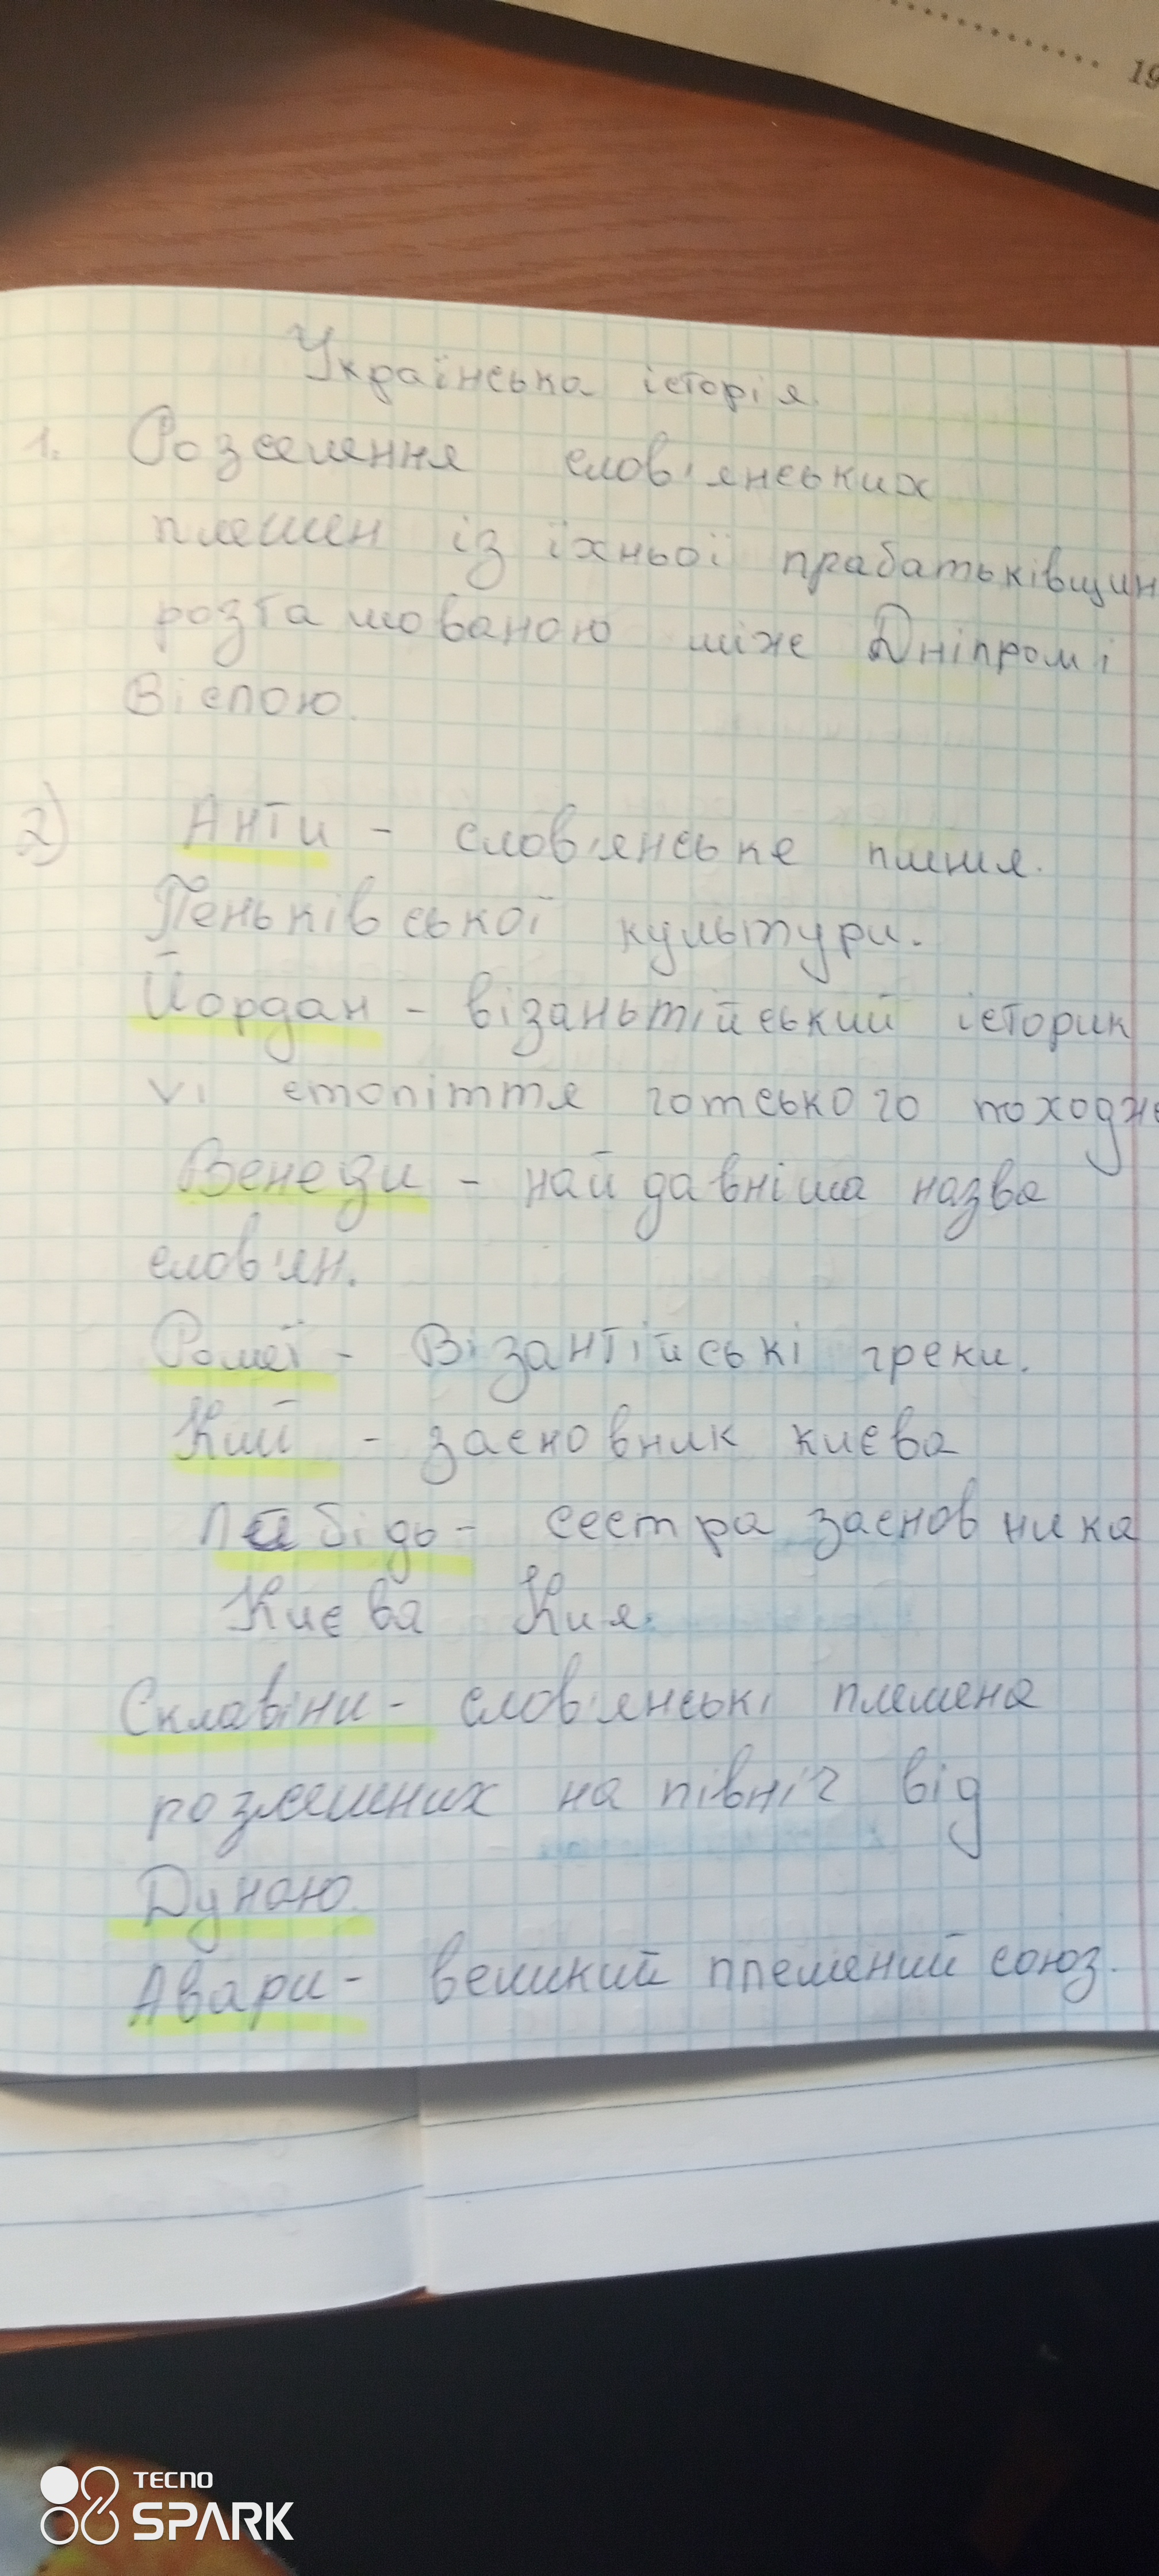 19
Українська історія.
1. Розселення слов'янських
племен із їхньої прабатьківщин
розташованою між Дніпром і
Віслою.
2) Анти - слов'янське плем'я.
Пеньківської культури.
Йордан - візаньтійський історик
VI століття готського походже
Венеди - найдавніша назва
слов'ян.
Ромеї - Візантійські греки.
Кий - засновник києва
Либідь - сестра засновника
Києва Кия.
Склавіни - слов'янські племена
на північ від
Дунаю.
Авари - великий племений союз.
TECNO
SPARK